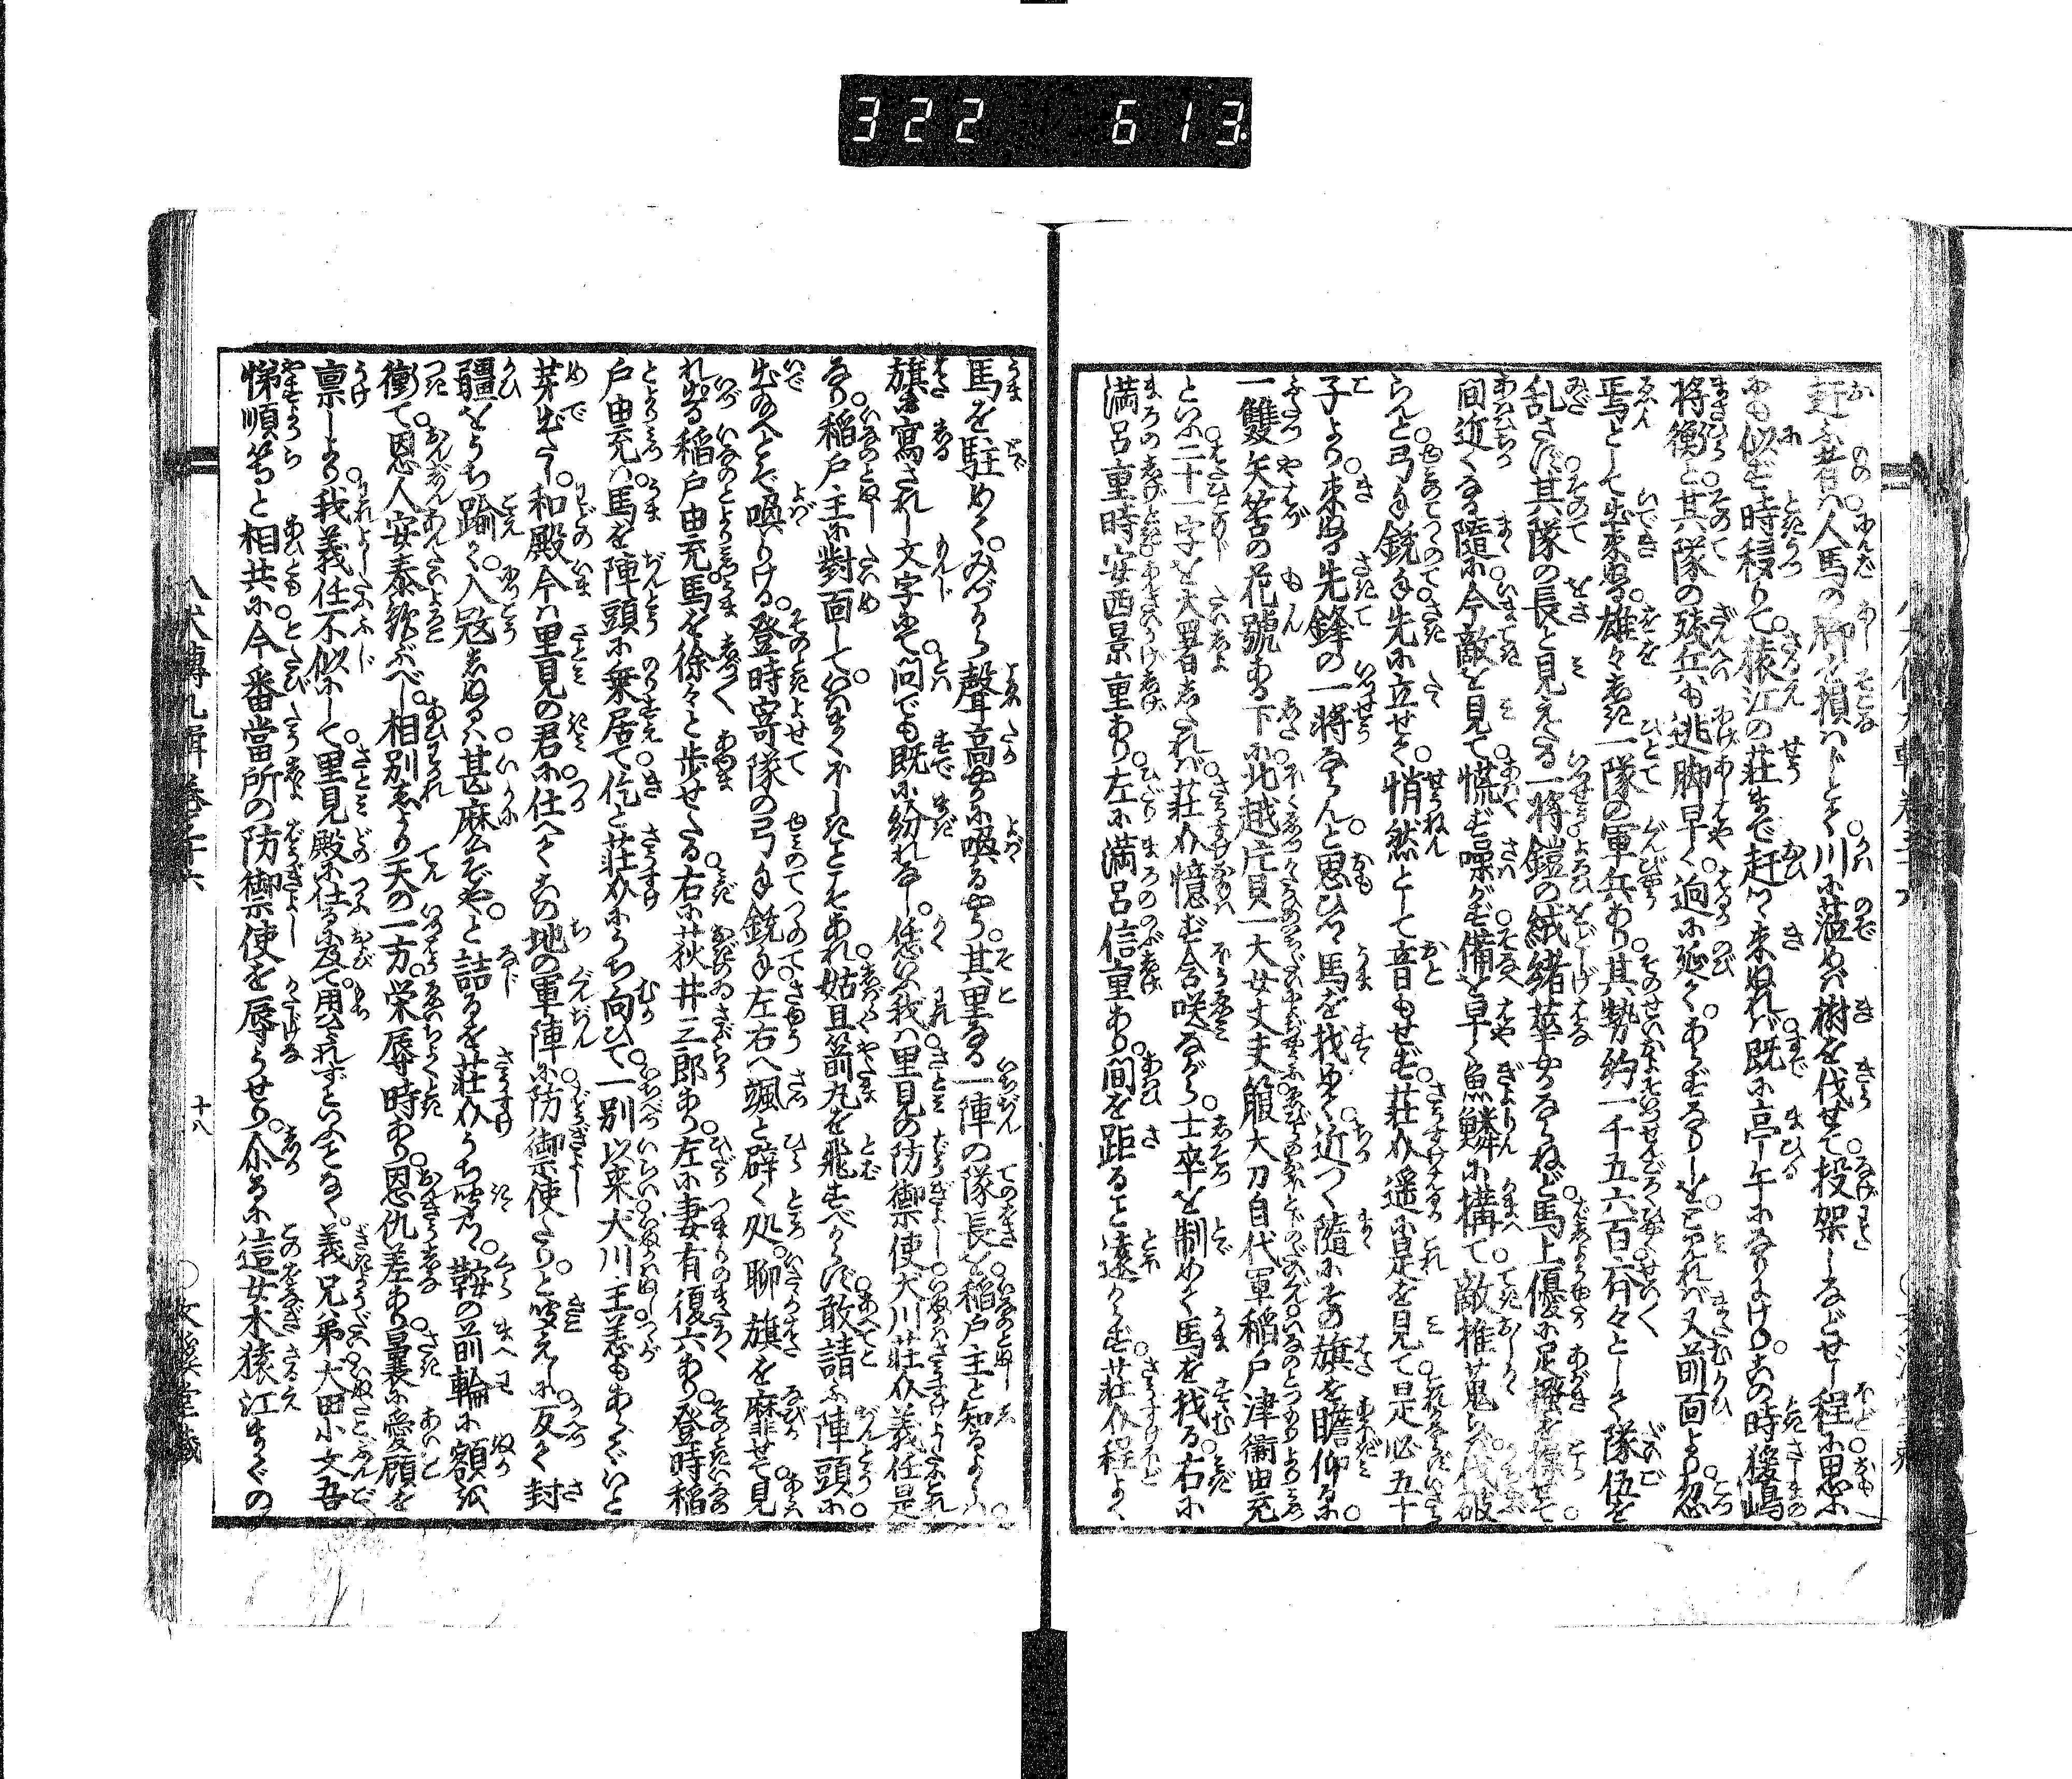 322 613
赶ふ者ハ人馬の脚を損ハじとて川に莅めバ樹を伐せて投架しなどせし程に思ふ
にも似ず時移りて猿江の荘まで赶ひ来ぬれバ既に亭午になりにけりこの時後嶋
将衡と其隊の殘兵も逃脚早く迥に延てあらずなりしをこれバ又前面より忽
焉として出来ぬる雄々しき一隊の軍兵あり其勢約一千五六百斉々として隊伍を
乱さず其隊の長と見えたる一将鎧の絨緒華やかならねど馬上優に足掻を操せて
間近くなる隨に今敵を見て慌ず噪がず備を早く魚鱗に構て敵推蒐らバ伐破
らんと弓手銃手先に立せて悄然として音もせず荘介遥に是を見て是必五十
子より来ぬる先鋒の一将ならんと思ひつゝ馬を找めて近つく隨にその旗を瞻仰るに
一雙矢筈の花號ある下に北越片貝一大女丈夫箙大刀自代軍稲戸津衛由充
といふ二十一字を大署したれバ荘介憶ず含咲ながら士卒を制めて馬を找る右に
満呂重時安西景重あり左に満呂信重あり間を距ること遠からず荘介程よく
馬を駐めてみづから聲高やかに喚るやう其里なる一陣の隊長を稲戸主と知るよしハ
旗に寫されし文字にて問でも既に紛れなし恁いふ我ハ里見の防禦使犬川荘介義任是
なり稲戸主に對面していはまくほしきことこそあれ姑且箭丸を飛すべからず敢請ふ陣頭に
出給へとぞ喚りける登時寄隊の弓手銃手左右へ颯と辟く処聊旗を麻靡せて見
れ出る稲戸由充馬を徐々と歩せたる右に荻井三郎あり左に妻有復六あり登時稲
戸由充ハ馬を陣頭に乗居て佇と荘介にうち向ひて一別以来犬川主恙もあらでいと
芽出たし和殿今ハ里見の君に仕へてこの地の軍陣に防禦使たりと聞えしに反て封
疆をうち踰て入寇しぬるハ甚麽ぞやと詰るを荘介うち聞つゝ鞍の前輪に額を
衝て恩人安泰歓ぶべし相別しより天の一方栄辱時あり恩仇差あり曩に愛顧を
禀しより我義任不似にして里見殿に仕るに及て用られずといふことなく義兄弟犬田小文吾
悌順等と相共に今番當所の防禦使を辱うせり介るに這女木猿江まての
八犬傳九輯巻三十六
十八
文溪堂藏